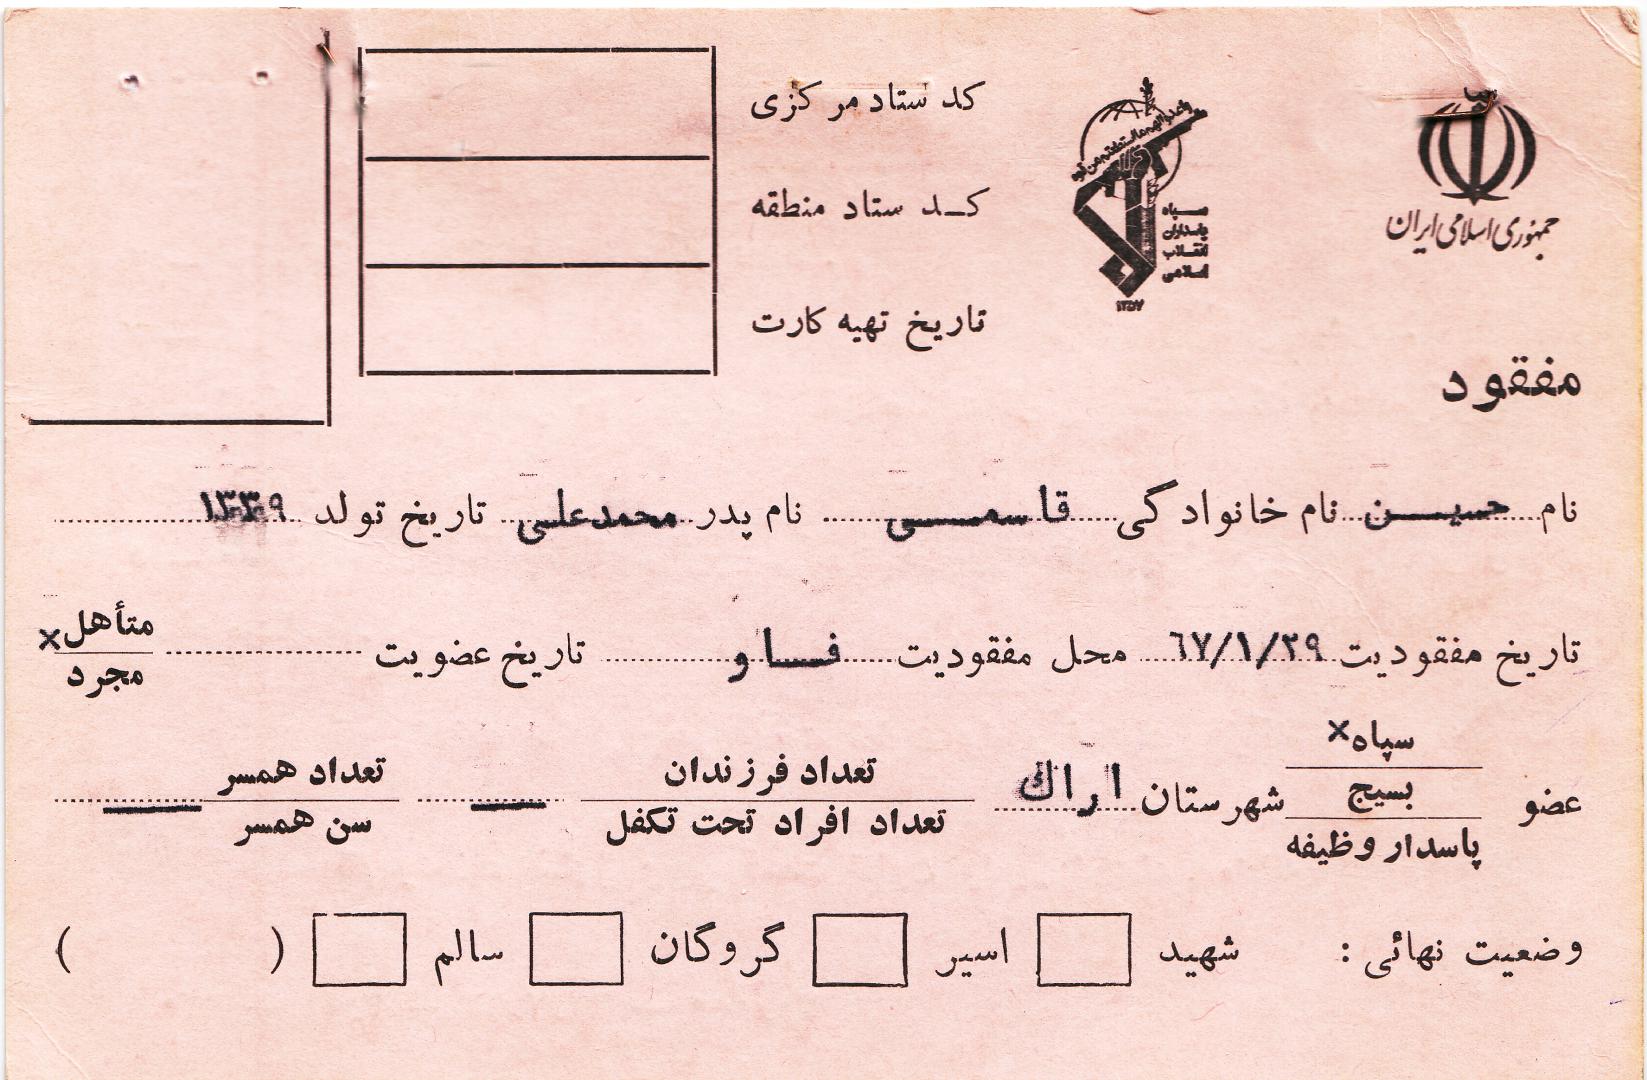 جمهوری اسلامی ایران
سپاه
پاسداران
انقلاب
اسلامی
۱۳۵۷
کد ستاد مرکزی
کد ستاد منطقه
تاریخ تهیه کارت
مفقود
نام حسین نام خانوادگی قاسمی نام پدر محمدعلی تاریخ تولد ۱۳۳۹
تاریخ مفقودیت ۶۷/۱/۲۹ محل مفقودیت فاو تاریخ عضویت متأهل× مجرد
عضو سپاه× بسیج پاسدار وظیفه شهرستان اراك تعداد فرزندان تعداد افراد تحت تکفل — تعداد همسر سن همسر —
وضعیت نهائی : شهید اسیر گروگان سالم ( )